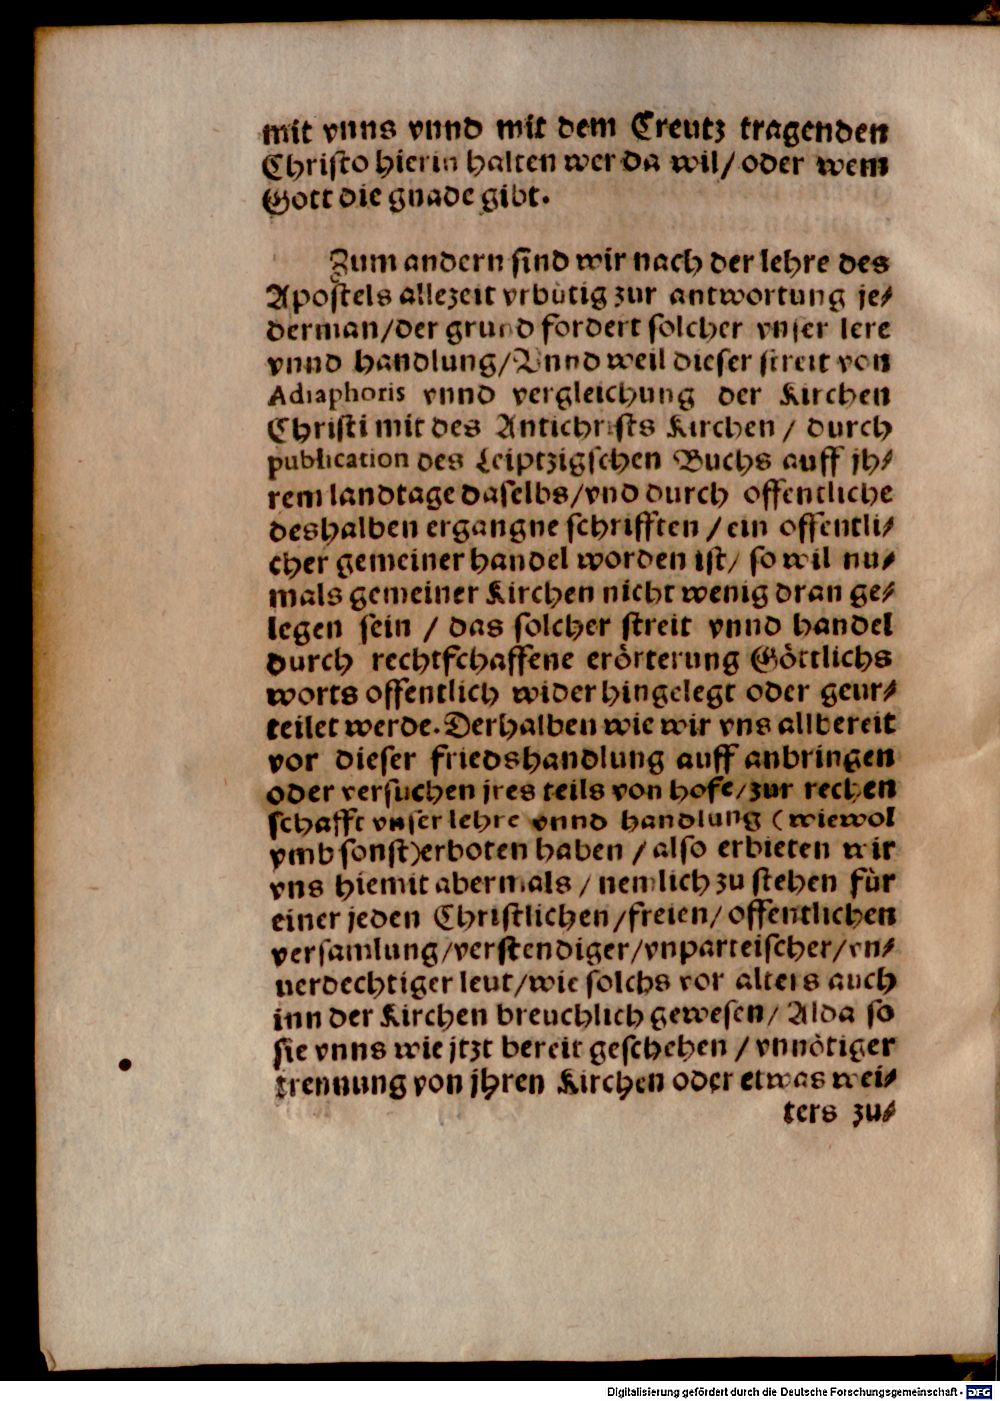 mit vnns vnnd mit dem Creutz tragenden
Christo hierin halten wer da wil/ oder wem
Gott die gnade gibt.
Zum andern sind wir nach der lehre des
Apostels allezeit vrbütig zur antwortung je⸗
derman/der grund fordert solcher vnser lere
vnnd handlung/Vnnd weil dieser streit von
Adiaphoris vnnd vergleichung der Kirchen
Christi mit des Antichrists Kirchen / durch
publication des Leiptzigschen Buchs auff jh⸗
rem landtage daselbs/vnd durch offentliche
deshalben ergangne schrifften / ein offentli⸗
cher gemeiner handel worden ist/ so wil nu⸗
mals gemeiner Kirchen nicht wenig dran ge⸗
legen sein / das solcher streit vnnd handel
durch rechtschaffene erörterung Göttlichs
worts offentlich wider hingelegt oder geur⸗
teilet werde. Derhalben wie wir vns allbereit
vor dieser friedshandlung auff anbringen
oder versuchen jres teils von hofe/zur rechen
schafft vnser lehre vnnd handlung (wiewol
vmb sonst)erboten haben / also erbieten wir
vns hiemit abermals / nemlich zu stehen für
einer jeden Christlichen/freien/ offentlichen
versamlung/verstendiger/vnparteischer/vn⸗
uerdechtiger leut/wie solchs vor alters auch
inn der Kirchen breuchlich gewesen/ Alda so
sie vnns wie jtzt bereit geschehen / vnnötiger
trennung von jhren Kirchen oder etwas wei⸗
ters zu⸗
Digitalisierung gefördert durch die Deutsche Forschungsgemeinschaft - DFG